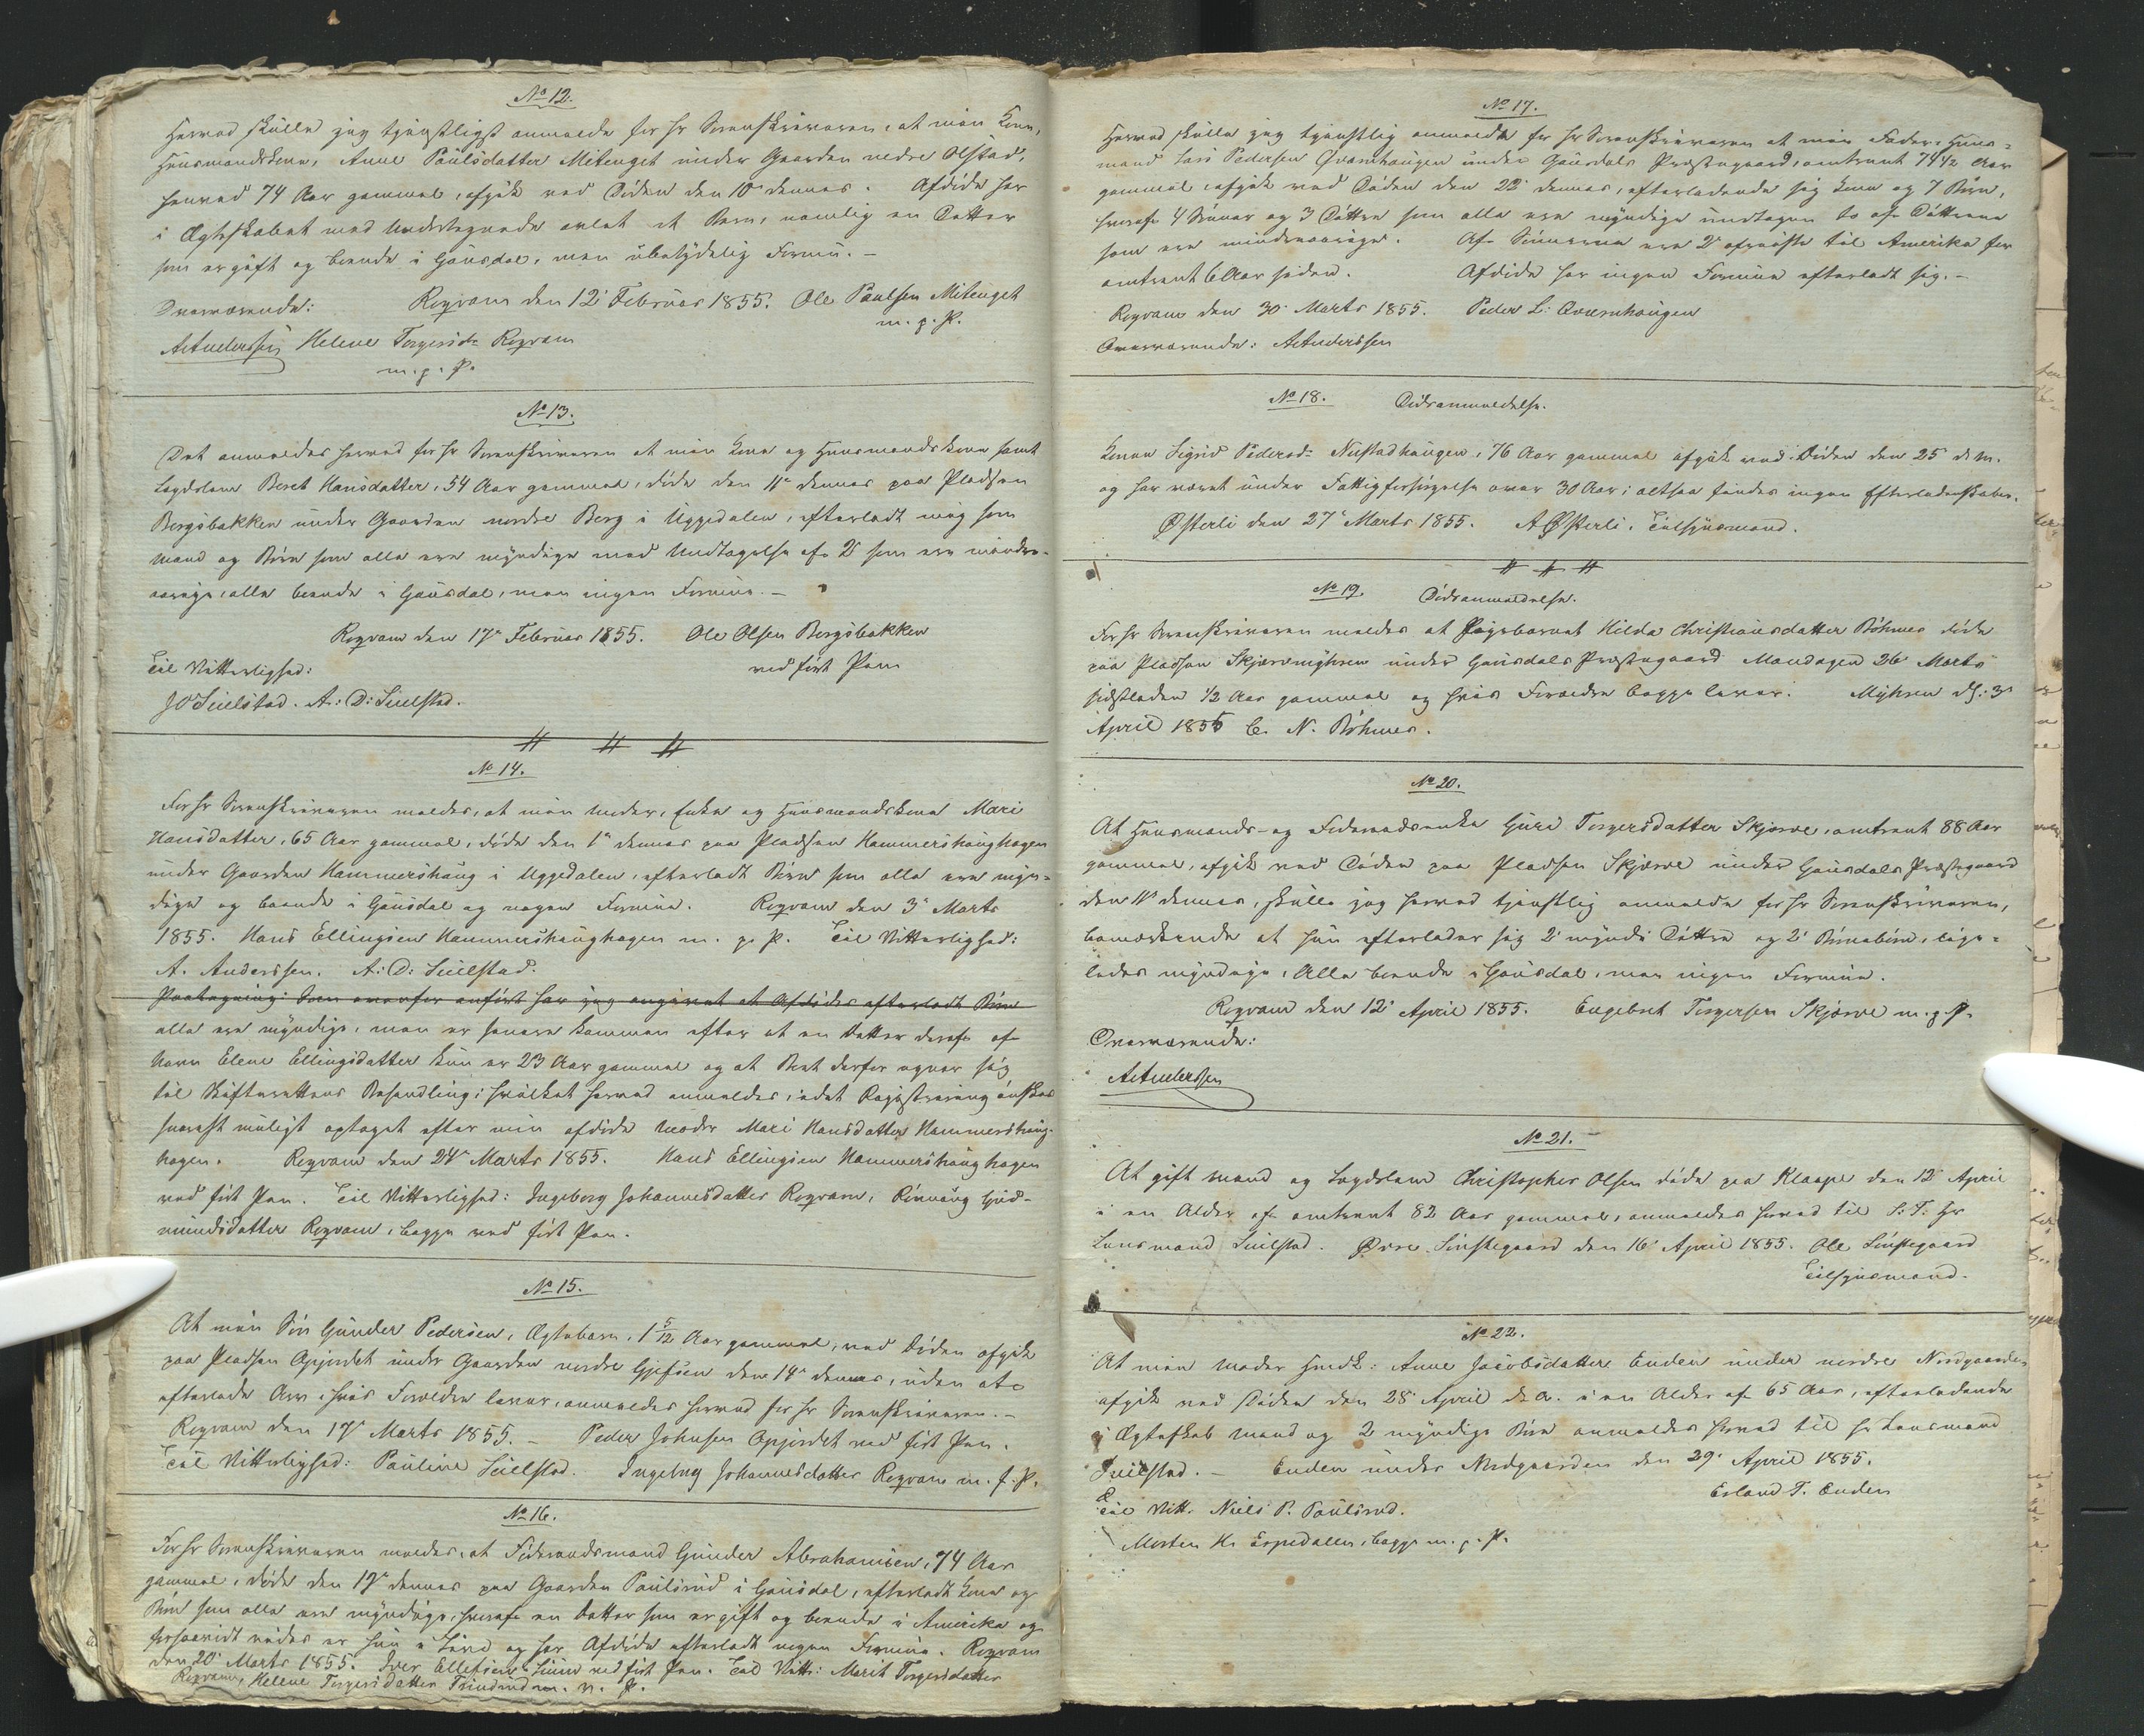 No 12.
Herved skulle jeg tjenstligst anmelde for Hr Sorenskriveren, at min Kone,
Huusmandskone, Anne Paulsdatter Mitenget under Gaarden nedre Olstad,
henved 74 Aar gammel, afgik ved Døden den 10de dennes. Afdøde har
i Ægteskabet med Undertegnede avlet et Barn, nemlig en Datter
som er gift og boende i Gausdal, men ubetydelig Formue. –
Overværende: Roqvam den 12te Februar 1855. Ole Paulsen Mitenget
m. p. P.
AAnderssen Helene Torgersdr Roqvam
m. p. P.
No 13.
Det anmeldes herved for Hr Sorenskriveren at min Kone og Huusmandskone samt
Lægdslem Beret Hansdatter, 54 Aar gammel, døde den 11te dennes paa Pladsen
Bergsbakken under Gaarden nordre Berg i Uggedalen, efterladt mig som
Mand og Børn som alle ere myndige med Undtagelse af 2 som ere mindre-
aarige, alle boende i Gausdal, men ingen Formue. –
Roqvam den 17de Februar 1855. Ole Olsen Bergsbakken
Til Vitterlighed: ved ført Pen
JO Suilstad. A: D: Suilstad.
No 14.
For Hr Sorenskriveren meldes, at min Moder, Enke og Huusmandskone Mari
Hansdatter, 65 Aar gammel, døde den 1te dennes paa Pladsen Hammershaughagen
under Gaarden Hammershaug i Uggedalen, efterladt Børn som alle ere myn-
dige og boende i Gausdal og nogen Formue. Roqvam den 3de Marts
1855. Hans Ellingsen Hammershaughagen m. p. P. Til Vitterlighed:
A. Anderssen. A: D: Suilstad.
Paategning: Som ovenfor anført har jeg angivet at Afdøde efterladt Børn
alle ere myndige, men er senere kommen efter at en Datter deraf af
Navn Elene Ellingsdatter kun er 23 Aar gammel og at Boet derfor egner sig
til Skifterettens Behandling; hvilket herved anmeldes, idet Registrering ønskes
snarest muligt optaget efter min afdøde Moder Mari Hansdatter Hammershaug-
hagen. Roqvam den 24de Marts 1855. Hans Ellingsen Hammershaughagen
ved ført Pen. Til Vitterlighed: Ingeborg Johannesdatter Roqvam, Rønnaug Gud-
mundsdatter Roqvam, begge ved ført Pen.
No 15.
At min Søn Gunder Pedersen, Ægtebarn, 1 5/12 Aar gammel, ved Døden afgik
paa Pladsen Opjordet under Gaarden nordre Gjefsen den 14de dennes, uden at
efterlade Arv, hvis Forældre lever, anmeldes herved for Hr Sorenskriveren. –
Roqvam den 17de Marts 1855. – Peder Johnsen Opjordet ved ført Pen.
Til Vitterlighed: Pauline Suilstad. Ingeborg Johannesdatter Roqvam m. f. P.
No 16.
For Hr Sorenskriveren meldes, at Føderaadsmand Gunder Abrahamsen, 74 Aar
gammel, døde den 19de dennes paa Gaarden Paulsrud i Gausdal, efterladt Kone og
Børn som alle ere myndige, hvoraf en Datter som er gift og boende i Amerika og
forsaavidt vides er hun i Live og har Afdøde efterladt nogen Formue. Roqvam
den 20de Marts 1855. Iver Ellefsen Liun ved ført Pen. Til Vitt: Marit Torgersdatter
Roqvam, Helene Torgersdatter Trindrud m. p. P.
No 17.
Herved skulle jeg tjenstlig anmelde for Hr Sorenskriveren at min Fader, Huus-
mand Lars Pedersen Qvarnhaugen under Gausdals Præstegaard, omtrent 74½ Aar
gammel, afgik ved Døden den 22de dennes, efterladende sig Kone og 7 Børn,
hvoraf 4 Sønner og 3 Døttre som alle ere myndige undtagen to af Døttrene
som ere mindreaarige. Af Sønnerne ere 2de afreiste til Amerika for
omtrent 6 Aar siden. Afdøde har ingen Formue efterladt sig. –
Roqvam den 30te Marts 1855. Peder L: Qvernhaugen
Overværende: AAnderssen
No 18. Dødsanmeldelse.
Konen Sigrid Pedersdr Nustadhaugen, 76 Aar gammel afgik ved Døden den 25 d. M.
og har været under Fattigforsørgelse over 30 Aar; altsaa findes ingen Efterladenskaber.
Østerli den 27de Marts 1855. A Østerli, Tilsynsmand.
No 19. Dødsanmeldelse.
For Hr Sorenskriveren meldes at Pigebarnet Hilda Christiansdatter Böhmer døde
paa Pladsen Skjærsmyhren under Gausdals Præstegaard Mandagen 26 Marts
sidstleden ½ Aar gammel og hvis Forældre begge lever. Myhren ds: 3de
April 1855 C. N. Böhmer.
No 20.
At Huusmands- og Føderaadsenke Guri Torgersdatter Skjærve, omtrent 88 Aar
gammel, afgik ved Døden paa Pladsen Skjærve under Gausdals Præstegaard
den 11te dennes, skulle jeg herved tjenstlig anmelde for Hr Sorenskriveren,
bemærkende at hun efterlader sig 2de myndi Døttre og 2de Børnebørn, lige-
ledes myndige, Alle boende i Gausdal, men ingen Formue.
Roqvam den 12te April 1855. Engebret Torgersen Skjærve m. p. P.
Overværende:
AAnderssen
No 21. –
At gift Mand og Lægdslem Christopher Olsen døde paa Klaape den 12te April
i en Alder af omtrent 82 Aar gammel, anmeldes herved til S: T. Hr
Lensmand Suilstad. Øvre Linstegaard den 16de April 1855. Ole Linstegaard
Tilsynsmand.
No 22.
At min Moder Hmdk: Anne Jacobsdatter Enden under nordre Nordgaarden
afgik ved Døden den 28de April d. A. i en Alder af 65 Aar, efterladende
i Ægteskab Mand og 2 myndige Børn anmeldes herved til Hr Lensmand
Suilstad. – Enden under Nordgaarden den 29de April 1855.
Erland T. Enden
Til Vitt. Niels P. Paulsrud.
Morten H. Espedalen, begge m. p. P.